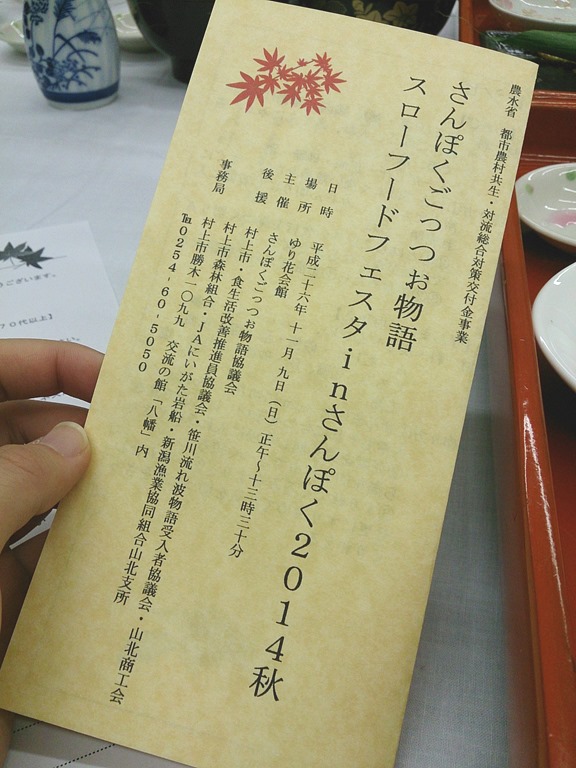 農水省 都市農村共生・対流総合対策交付金事業
さんぽくごっつぉ物語
スローフードフェスタinさんぽく2014秋
日時 平成二十六年 十一月 九日(日)正午~十三時三十分
場所 ゆり花会館
主催 さんぽくごっつぉ物語協議会
後援 村上市・食生活改善推進員協議会・笹川流れ波物語受入者協議会・山北商工会
村上市森林組合・JAにいがた岩船・新潟漁業協同組合山北支所
事務局 村上市勝木一〇九九 交流の館「八幡」内
℡0254-60-5050
うございます。
70代以上】